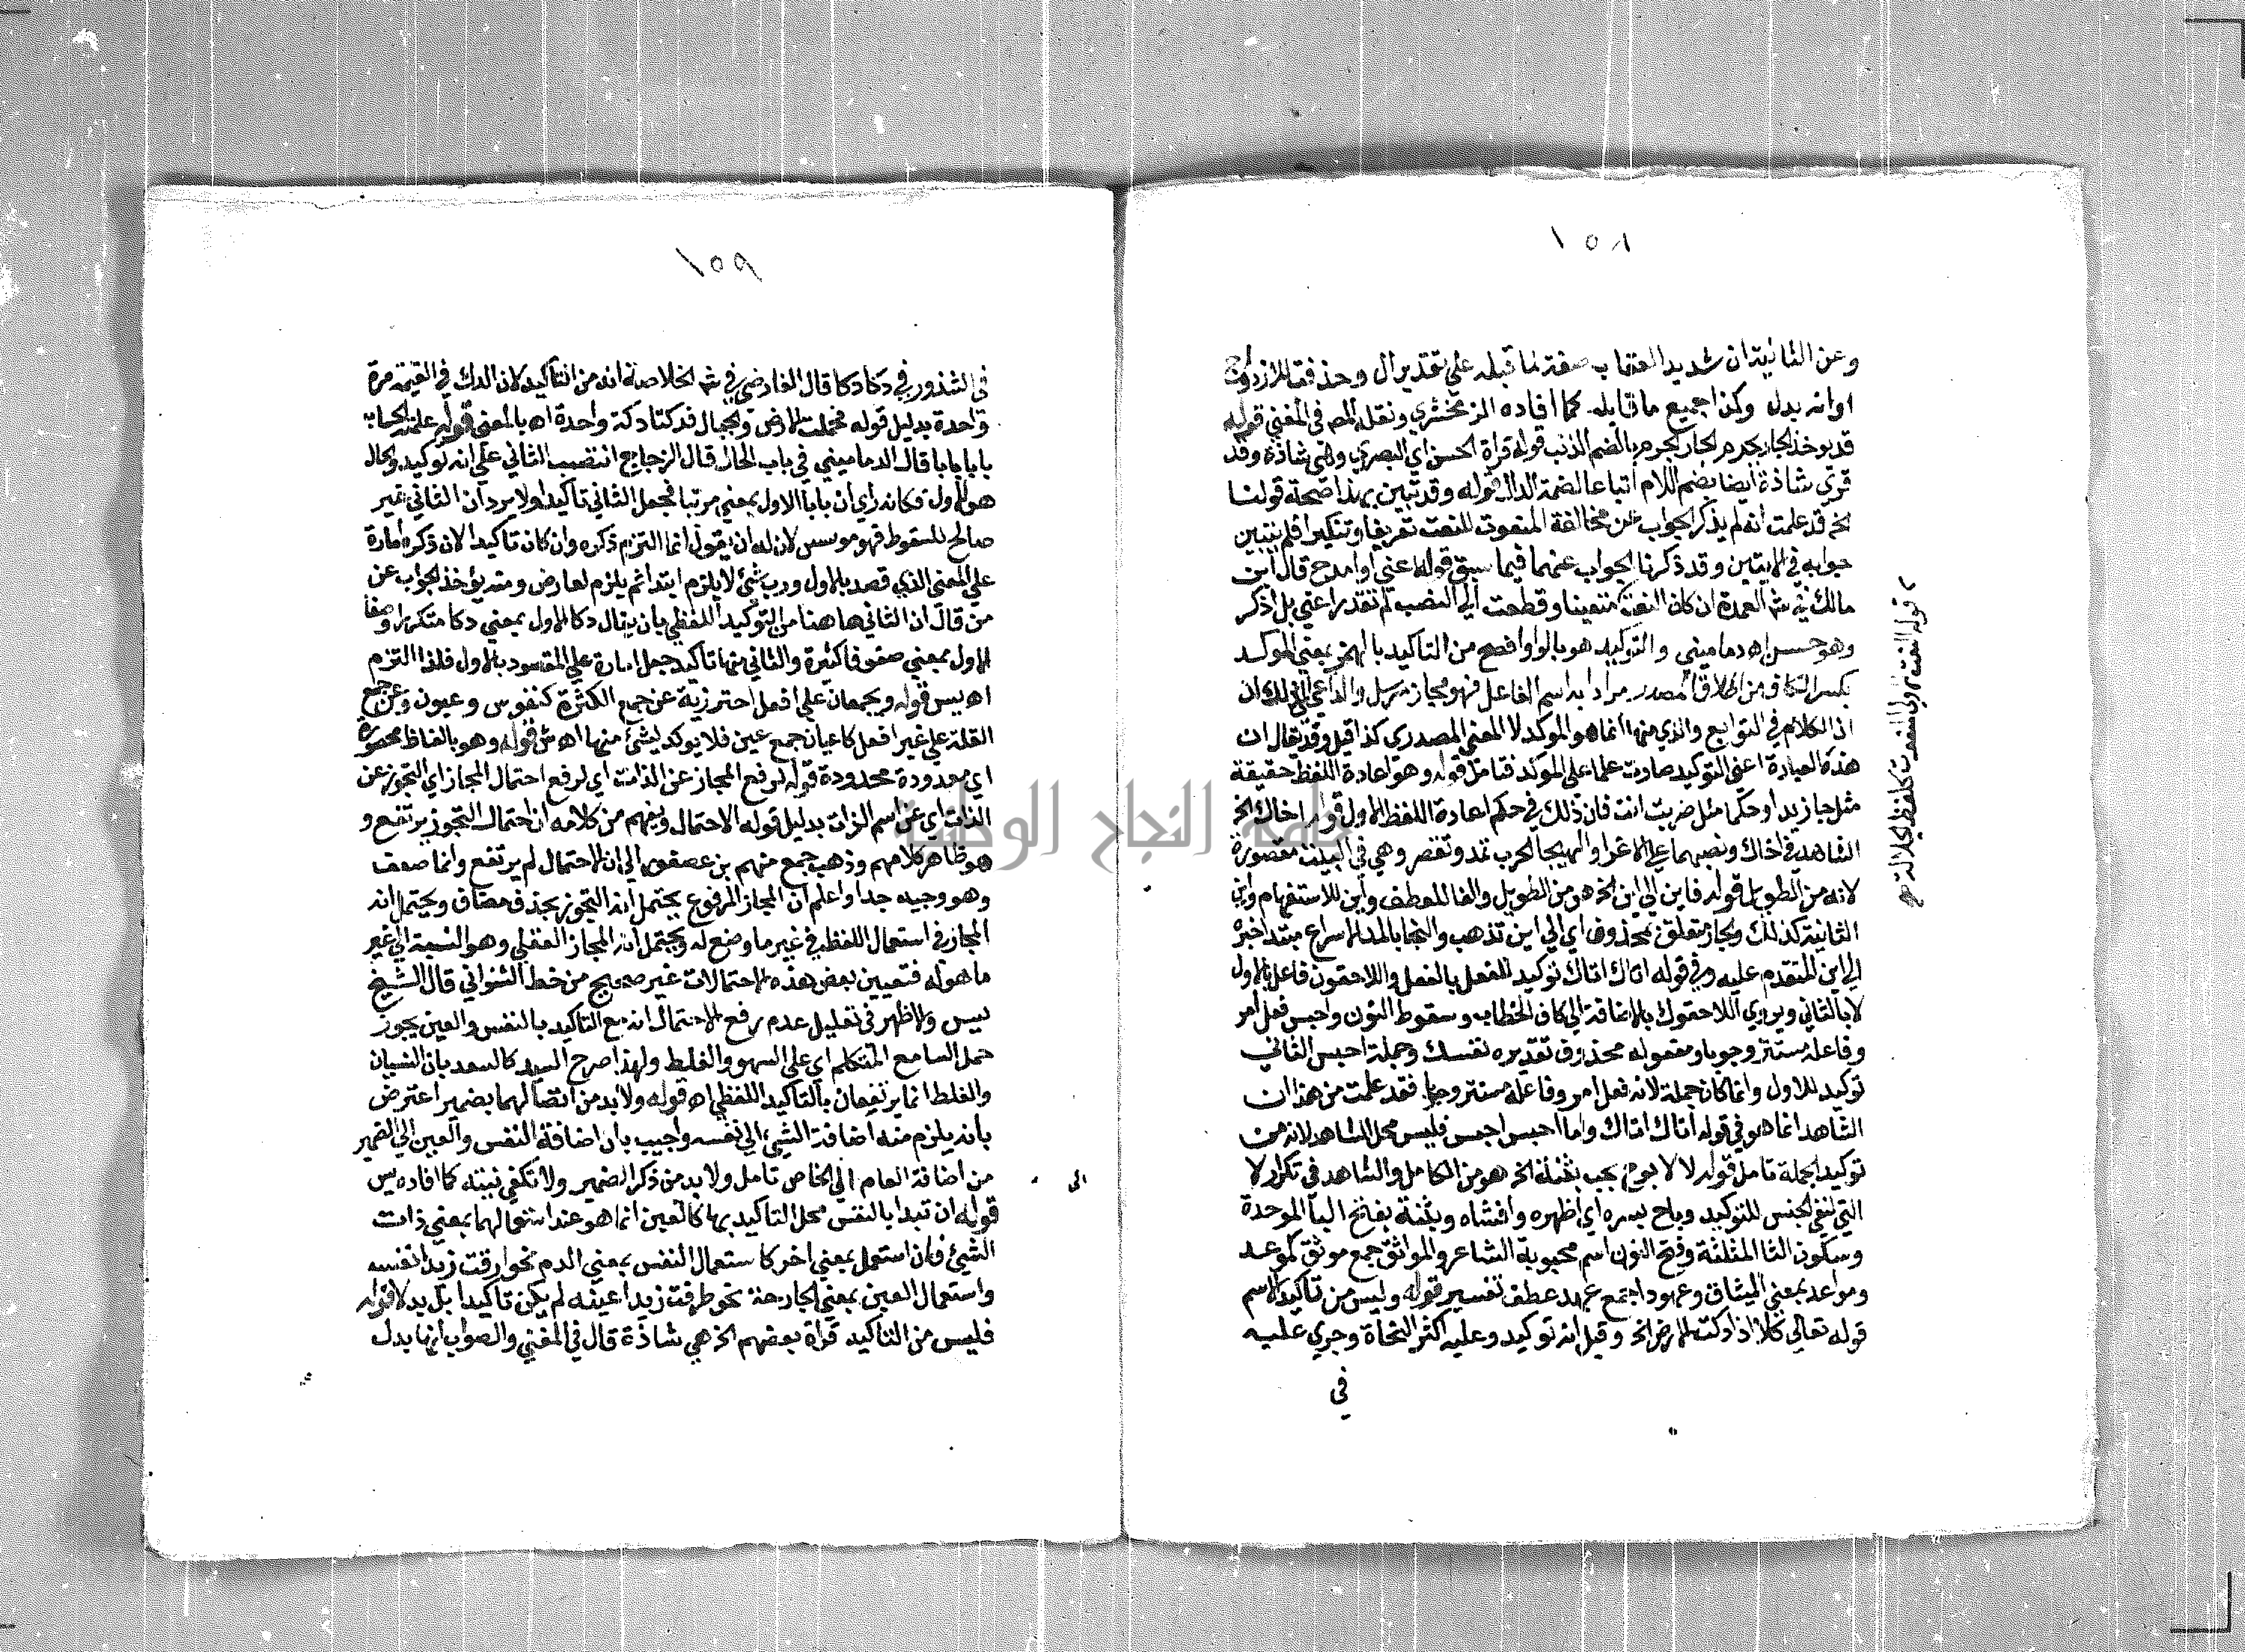 ١٥٨
وعن الثانية ان شديد العقاب صفة لما قبله علي تقدير ال وحذفت للازدواج
او انه بدل وكذا جميع ما قابله كما افاده الزمخشري ونقله المص في المغني قوله
قد يوخذ الجار بجرم الجار بالضم الذنب قوله قراة الحسن اي البصري وهي شاذة وقد
قري شاذة ايضا بضم اللام اتباعا لضمة الدال قوله وقد تبين بهذا صحة قولنا
الخ قد علمت انه لم يذكر الجواب عن مخالفة المنعوت للنعت تعريفا وتنكيرا فلم يتبين
جوابه في الايتين وقد ذكرنا الجواب عنهما فيما سبق قوله اعني او امدح قال ابن
مالك في شرح العمدة ان كان النعت متعينا وقطعت الي النصب لم تقدر اعني بل اذكر
وهو حسن اه دماميني والتوكيد هو بالواو افصح من التاكيد بالهمز بمعني الموكد
بكسر الكاف من اطلاق المصدر مرادا به اسم الفاعل فهو مجاز مرسل والداعي الي ذلك ان
اذ الكلام في التوابع والذي منها انما هو الموكد لا المعني المصدري كذا قيل وقد يقال ان
هذه العبارة اعني التوكيد صارت علما علي الموكد فتامل قوله وهو اعادة اللفظ حقيقة
مثل جا زيد او حكما مثل ضربت انت فان ذلك في حكم اعادة اللفظ الاول قوله اخاك الخ
الشاهد في اخاك ونصبهما علي الاغرا والهيجا الحرب تمد وتقصر وهي في البيت مقصورة
لانه من الطويل قوله فاين الي اين الخ هو من الطويل والفا للعطف واين للاستفهام واين
الثانية كذلك والجار متعلق بمحذوف اي الي اين تذهب والنجا بالمد الاسراع مبتدا خبره
الي اين المتقدم عليه وفي قوله اتاك اتاك توكيد للفعل بالفعل واللاحقون فاعل بالاول
لا بالثاني ويروي اللاحقوك بالاضافة الي كاف الخطاب وسقوط النون واحبس فعل امر
وفاعله مستتر وجوبا ومفعوله محذوف تقديره نفسك وجملة احبس الثاني
توكيد للاول وانما كان جملة لانه فعل امر وفاعله مستتر وجوبا فقد علمت من هذا ان
الشاهد انما هو في قوله اتاك اتاك واما احبس احبس فليس محل الشاهد لانه من
توكيد الجملة تامل قوله لا لا ابوح بحب بثنة الخ هو من الكامل والشاهد في تكرار لا
التي لنفي الجنس للتوكيد وباح بسره اي اظهره وافشاه وبثنة بفتح البا الموحدة
وسكون الثا المثلثة وفتح النون اسم محبوبة الشاعر والمواثق جمع موثق كموعد
ومواعد بمعني الميثاق وعهودا جمع عهد عطف تفسير قوله وليس من تاكيد الاسم
قوله تعالي كلا اذا دكت الارض الخ وقيل انه توكيد وعليه اكثر النحاة وجري عليه
في
قوله النعت الي المنعوت كلفظ الجلالة
١٥٩
في الشذور في دكا دكا قال الفارضي في شرح الخلاصة انه من التاكيد لان الدك في القيمة مرة
واحدة بدليل قوله وحملت الارض والجبال فدكتا دكة واحدة اه بالمعني قوله علمته الحساب
بابا بابا قال الدماميني في باب الحال قال الزجاج انتصب الثاني علي انه توكيد والحال
هو الاول فكانه راي ان بابا الاول بمعني مرتبا فجعل الثاني تاكيدا ولا يرد ان الثاني غير
صالح للسقوط فهو موسس لان له ان يقول انما التزم ذكره وان كان تاكيدا لان ذكره امارة
علي المعني الذي قصد بالاول ورب شئ لا يلزم ابتدا ثم يلزم لعارض ومنه يؤخذ الجواب عن
من قال ان الثاني هاهنا من التوكيد اللفظي بان يقال دكا الاول بمعني دكا متكررا وصفا
الاول بمعني صفوفا كثيرة والثاني منهما تاكيد جعل امارة علي المقسود بالاول فلذا التزم
اه يس قوله ويجمعان علي افعل احترز به عن جمع الكثرة كنفوس وعيون وعن جمع
القلة علي غير افعل كاعيان جمع عين فلا يوكد بشئ منها اه ش قوله وهو بالفاظ محصورة
اي معدودة محدودة قوله لرفع المجاز عن الذات اي لرفع احتمال المجاز اي التجوز عن
الذات اي عن اسم الذات بدليل قوله الاحتمال ويفهم من كلامه ان احتمال التجوز يرتفع و
هو ظاهر كلامهم وذهب جمع منهم بن عصفور الي ان الاحتمال لم يرتفع وانما ضعف
وهو وجيه جدا واعلم ان المجاز المرفوع يحتمل انه التجوز بحذف مضاف ويحتمل انه
المجاز في استعمال اللفظ في غير ما وضع له ويحتمل انه المجاز العقلي وهو النسبة الي غير
ما هو له فتعيين بعض هذه الاحتمالات غير صحيح من خط الشنواني قال الشيخ
يس والاظهر في تعليل عدم رفع الاحتمال انه مع التاكيد بالنفس والعين يجوز
حمل السامع المتكلم اي علي السهو والغلط ولهذا صرح السيد كالسعد بان النسيان
والغلط انما يرتفعان بالتاكيد اللفظي اه قوله ولا بد من اتصالهما بضمير اعترض
بانه يلزم منه اضافة الشيئ الي نفسه واجيب بان اضافة النفس والعين الي الضمير
من اضافة العام الي الخاص تامل ولا بد من ذكر الضمير ولا تكفي نيته كما افاده يس
الي
قوله ان تبدا بالنفس محل التاكيد بها كالعين انما هو عند استعمالهما بمعني ذات
الشيئ فان استعمل بمعني اخر كاستعمال النفس بمعني الدم نحو ارقت زيدا نفسه
واستعمال العين بمعني الجارحة نحو طرفت زيدا عينه لم يكن تاكيدا بل بدلا قوله
فليس من التاكيد قراة بعضهم الخ هي شاذة قال في المغني والصواب انها بدل
جامعة النجاح الوطنية